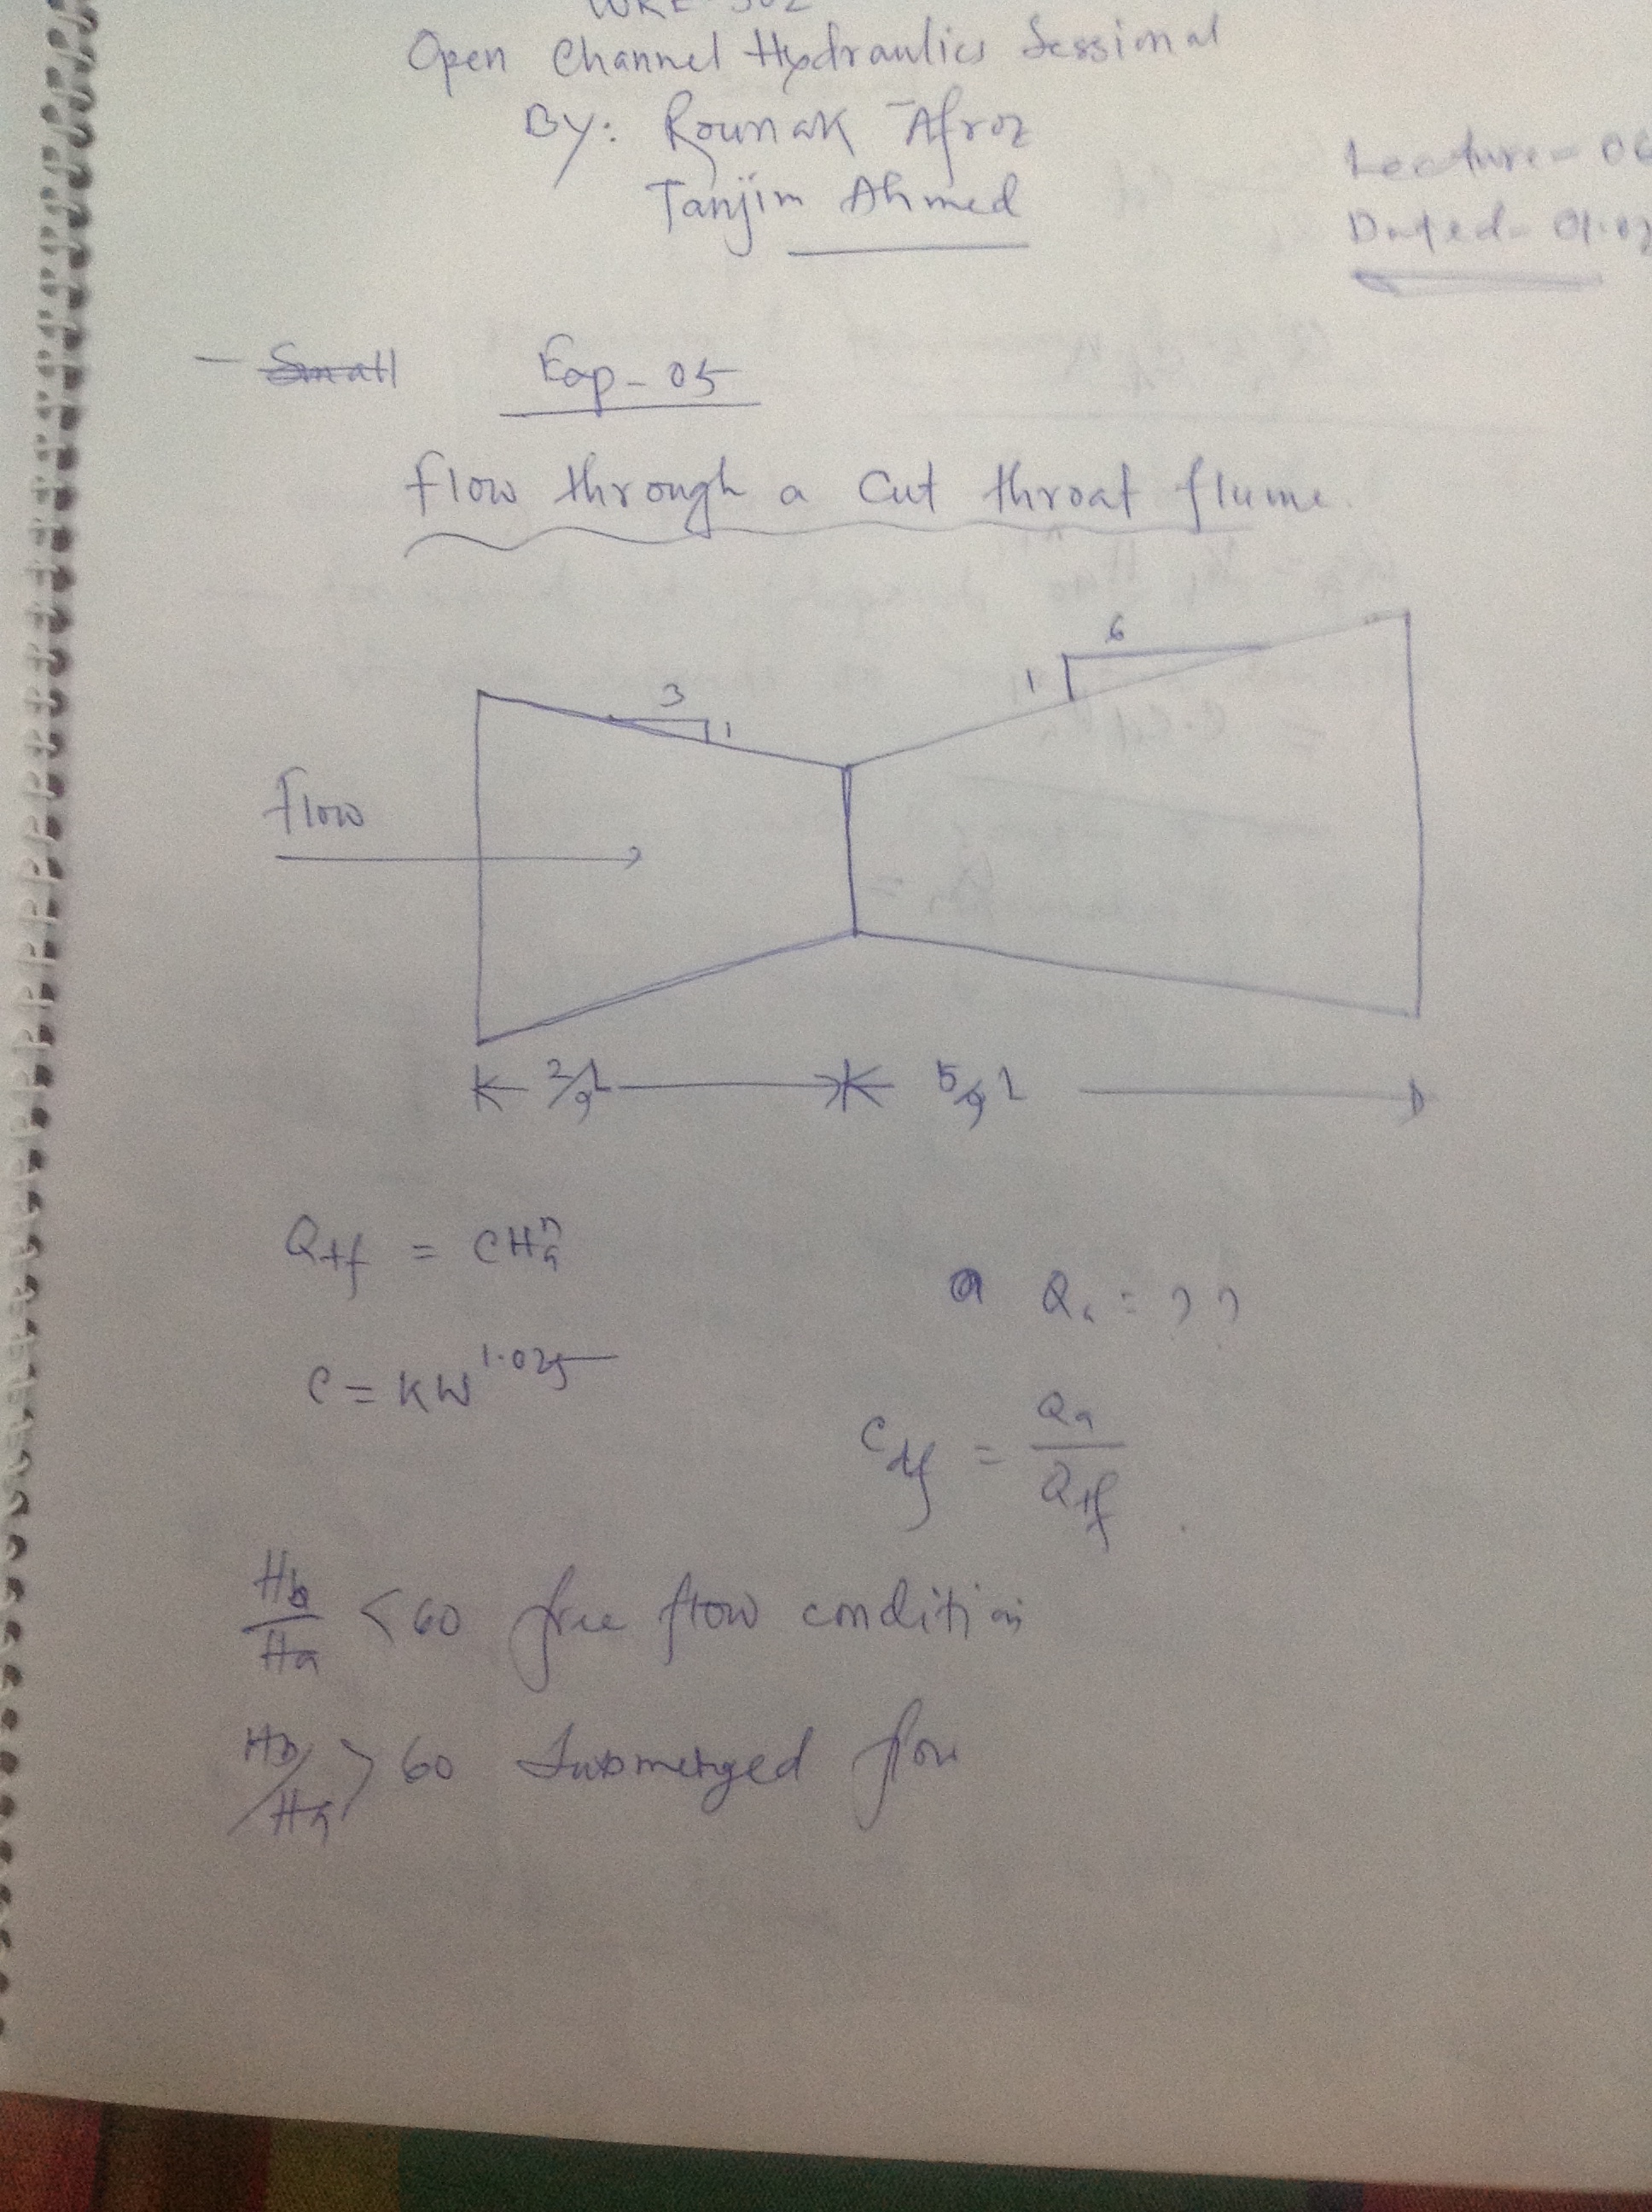 WRE-302
Open Channel Hydraulics Sessional
By: Rounak Afroz
Tanjim Ahmed
Lecture-
Dated-
- Small Exp-05
Flow through a cut throat flume.
3
1
6
1
Flow
2/9L
5/9L
Qtf = CHa^n
Qa = ??
C = KW^1.025
Cdf = Qa/Qtf
Hb/Ha <60 free flow condition
Hb/Ha >60 Submerged flow